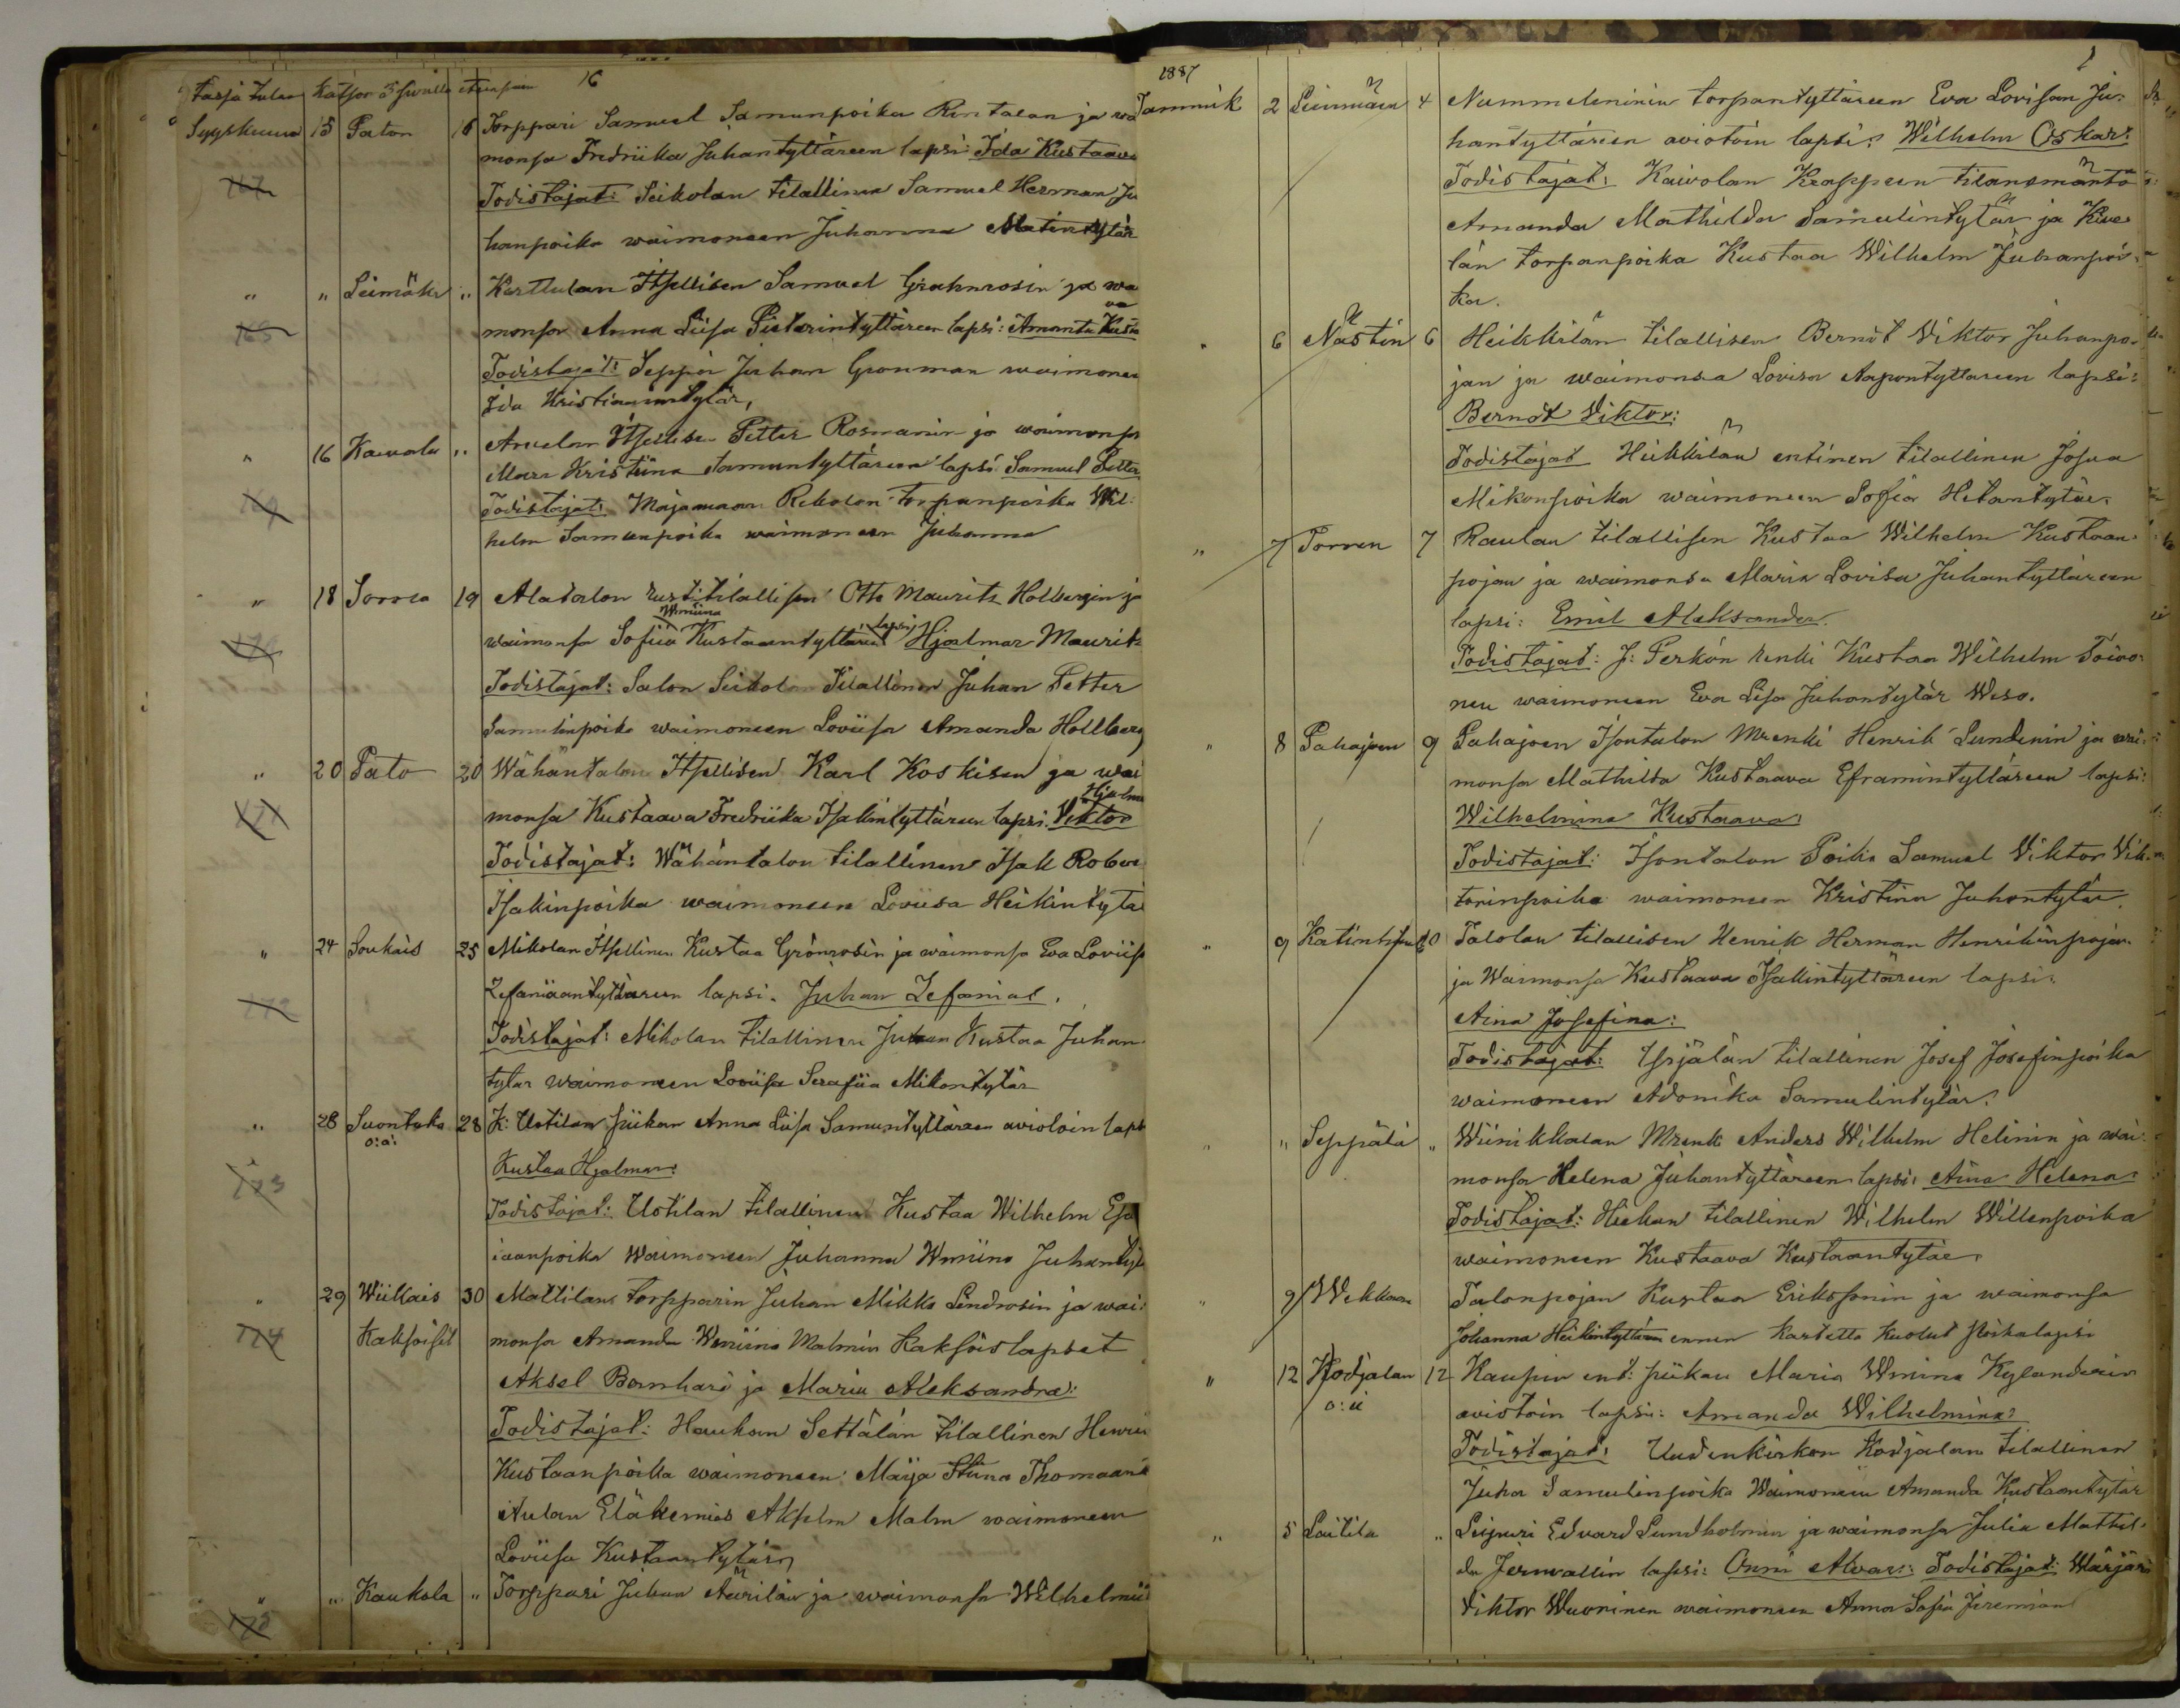 16
Syyskuun 15 Paton 16 Torppari Samuel Samunpoika Rintalan ja wa
monsa Fredriika Juhantyttäreen lapsi: Ida Kustaava
Todistajat: Seikolan tilallinen Samuel Herman Ju
hanpoika waimoneen Juhanna Matintytär
" " Leimäki " Karttulan Itsellisen Samuel Grahnrosin ja wa
monsa Anna Liisa Pietarintyttäreen lapsi: Amanta Kusta
Todistajat: Seppä Juhan Gronman waimoneen
Ida Kristiaanintytär,
" 16 Kawala " Itsellisen Petter Rosmanin ja waimonsa
Maria Kristiina Samuntyttäreen lapsi Samuel Petter
Todistajat: Majamaan Rekolan torpanpoika Wil:
helm Samunpoika waimoneen Juhanna
" 18 Sorrea 19 Alatalon rustitilallisen Otto Maurits Hollbergin ja
Wmiina lapsi
waimonsa Sofiia Kustaantyttären Hjalmar Maurits
Todistajat: Salon Seikolan Tilallinen Juhan Petter
Samulinpoika waimoneen Loviisa Amanda Hollberg
" 20 Pato 20 Wähäntalon Itsellisen Karl Koskisen ja wai
Hjalm
monsa Kustaava Fredriika Isakintyttäreen lapsi: Viktor
Todistajat: Wähäntalon tilallinen Isak Rober
Isakinpoika waimoneen Loviisa Heikintytä
" 24 Soukais 25 Mikolan Itsellinen Kustaa Grönrosin ja waimonsa Eva Loviisa
Zefaniaantyttäreen lapsi. Juhan Zefanias.
172
Todistajat: Mikolan tilallinen Juhan Kustaa Juhan
tytar waimoneen Loviisa Serafiia Mikontytär
" 28 Suontaka 28 K: Uotilan piikan Anna Liisa Samuntyttäreen aviotoin laps
o:a:
Kustaa Hjalmar:
173
Todistajat: Uotilan tilallinen Kustaa Wilhelm Esa
iaanpoika Waimoneen Juhanna Wmiina Juhantyt
" 29 Wiikais 30 Mattilan torpparin Juhan Mikko Lindrosin ja wai:
174 Kaksoiset monsa Amanda Wmiina Malmin Kaksoislapset
Aksel Barnhard ja Maria Aleksandra:
Todistajat: Haukan Settälän tilallinen Henri
Kustaanpoika waimoneen Maija Stiina Thomaan
Aulan Eläkemies Akselm Malm waimoneen
Loviisa Kustaantytär
" " Kaukola " Torppari Juhan Aurilan ja waimonsa Wilhelmii
1887
1
Tammik 2 Leinmäen 4 Nummelminin torpantyttäreen Eva Lovisan Ju:
hantyttäreen aviotoin lapsi: Wilhelm Oskar:
Todistajat: Kaivolan Krappeen tilanomänto
Amanda Mathilda Samulintytär ja Kive
län torpanpoika Kustaa Wilhelm Juhanpoi:
ka.
" 6 Nästin 6 Heikkilän tilallisen Berndt Viktor Juhanpo:
jan ja waimonsa Lovisa Aapontyttareen lapsi:
Berndt Viktor:
Todistajat Heikkilän entinen tilallinen Josua
Mikonpoika waimoneen Sofia Heikantytär
" 7 Torren 7 Raulan tilallisen Kustaa Wilhelm Kustaan:
pojan ja waimonsa Maria Lovisa Juhantyttäreen
lapsi: Emil Aleksander.
Todistajat: J: Perkön renki Kustaa Wilhelm Toivo:
nen waimoneen Eva Lisa Juhantytär Weso.
" 8 Pahajoen 9 Pahajoen Isontalon Mrenki Henrik Lundenin ja wai:
monsa Mathilda Kustaava Eframintyttäreen lapsi:
Wilhelmina Kustaava:
Todistajat: Isontalon Poika Samuel Viktor Vik:
torinpoika waimoneen Kristina Juhontytär
" 9 Katinhännä 10 Talolan tilallisen Henrik Herman Henrikinpojan
ja Waimonsa Kustaava Isakintyttäreen lapsi:
Aina Josefina:
Todistajat: Yrjälän tilallinen Josef Josefinpoika
waimoneen Adonika Samulintytär:
" " Seppälä " Wiinikkalan Mrenk Anders Wilhelm Helinin ja wai:
monsa Helena Juhantyttäreen lapsi: Aina Helena:
Todistajat: Heikan tilallinen Wilhelm Willenpoika
waimoneen Kustaava Kustaantytär
" 9 Wekkaan Talonpojan Kustaa Erikssonin ja waimonsa
Johanna Heikintyttären ennen kastetta kuollut Poikalapsi
" 12 Kodjalan 12 Kaupin ent: piikan Maria Wmina Kylanderin
o:ü aviotoin lapsi: Amanda Wilhelmina:
Todistajat: Uudenkirkon Kodjalan tilallinen
Juha Samulinpoika Waimoneen Amanda Kustaantytär
" 5 Laitila " Leipuri Edvard Lundholmin ja waimonsa Julia Mathil:
da Jernvallin lapsi: Onni Alvar: Todistajat: Wärjäri
Viktor Wuorinen waimoneen Anna Sofia Jeremian